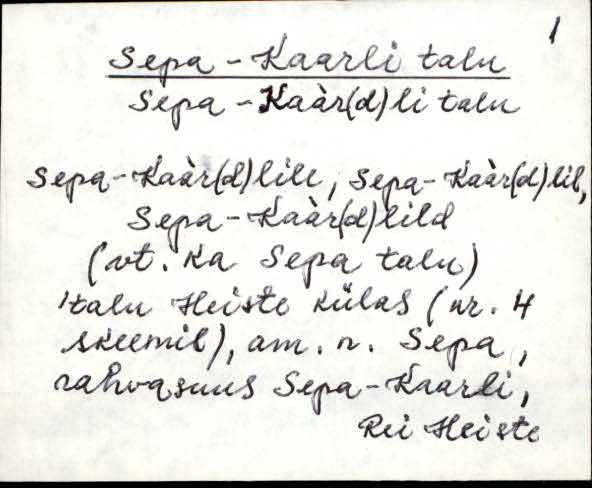 1
Sepa-Kaarli talu
Sepa-Kaàr(d)li talu
Sepa-Kaàr(d)lile, Sepa-Kaàr(d)lil,
Sepa-Kaàr(d)lild
(vt. ka Sepa talu)
'talu Heiste külas (nr. 4
skeemil), am. n. Sepa,
rahvasuus Sepa-Kaarli,
Rei Heiste